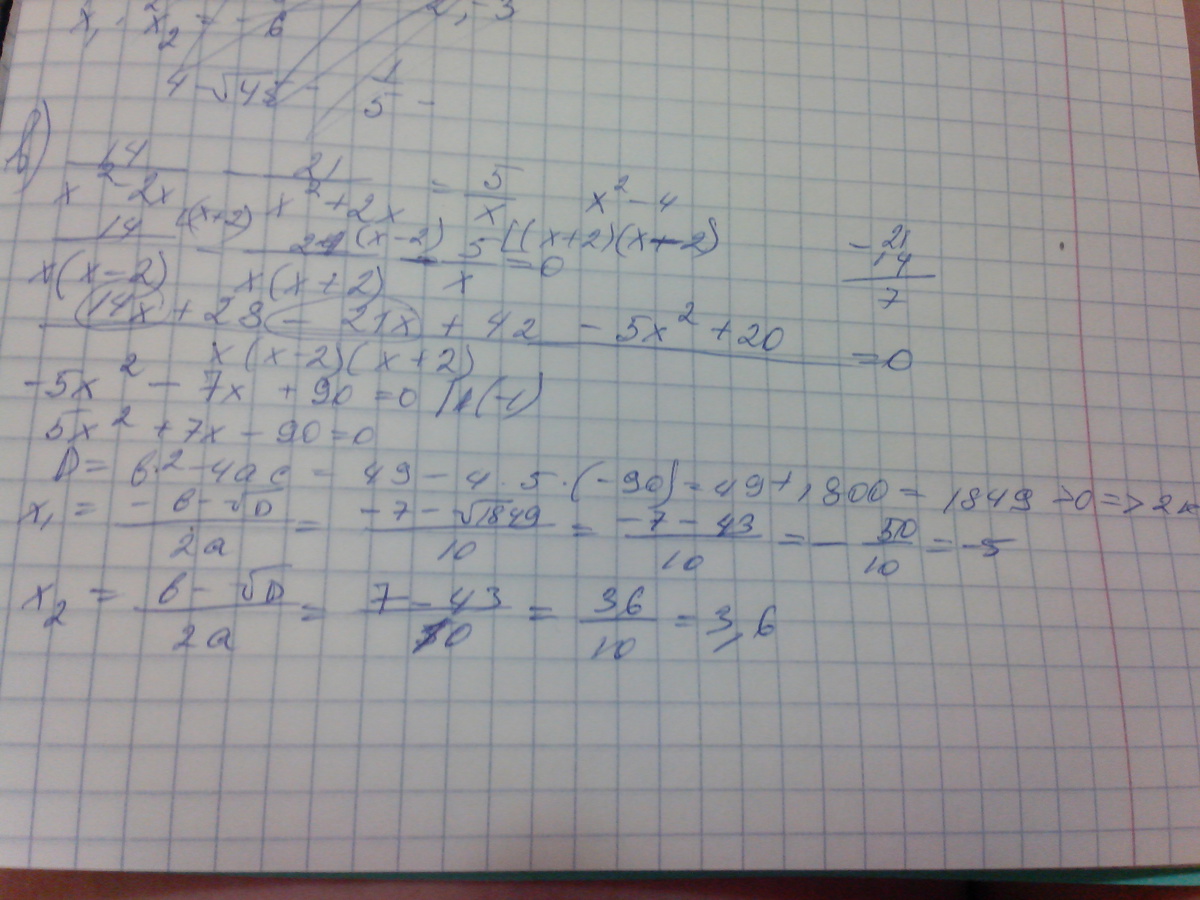 x₁ · x₂ = - 6 2, -3
4 - √43 - 1/5 -
в) 14/(x² - 2x) - 21/(x² + 2x) = 5/x x² - 4
14/(x(x-2)) |(x+2) - 21/(x(x+2)) (x-2) - 5/x |(x+2)(x-2) = 0
- 21
14
7
(14x + 28 - 21x + 42 - 5x² + 20)/(x(x-2)(x+2)) = 0
-5x² - 7x + 90 = 0 |·(-1)
5x² + 7x - 90 = 0
D = в² - 4ac = 49 - 4 · 5 · (-90) = 49 + 1800 = 1849 > 0 => 2к
x₁ = (-в - √D)/2a = (-7 - √1849)/10 = (-7 - 43)/10 = - 50/10 = -5
x₂ = (в - √D)/2a = (7 - 43)/10 = 36/10 = 3,6